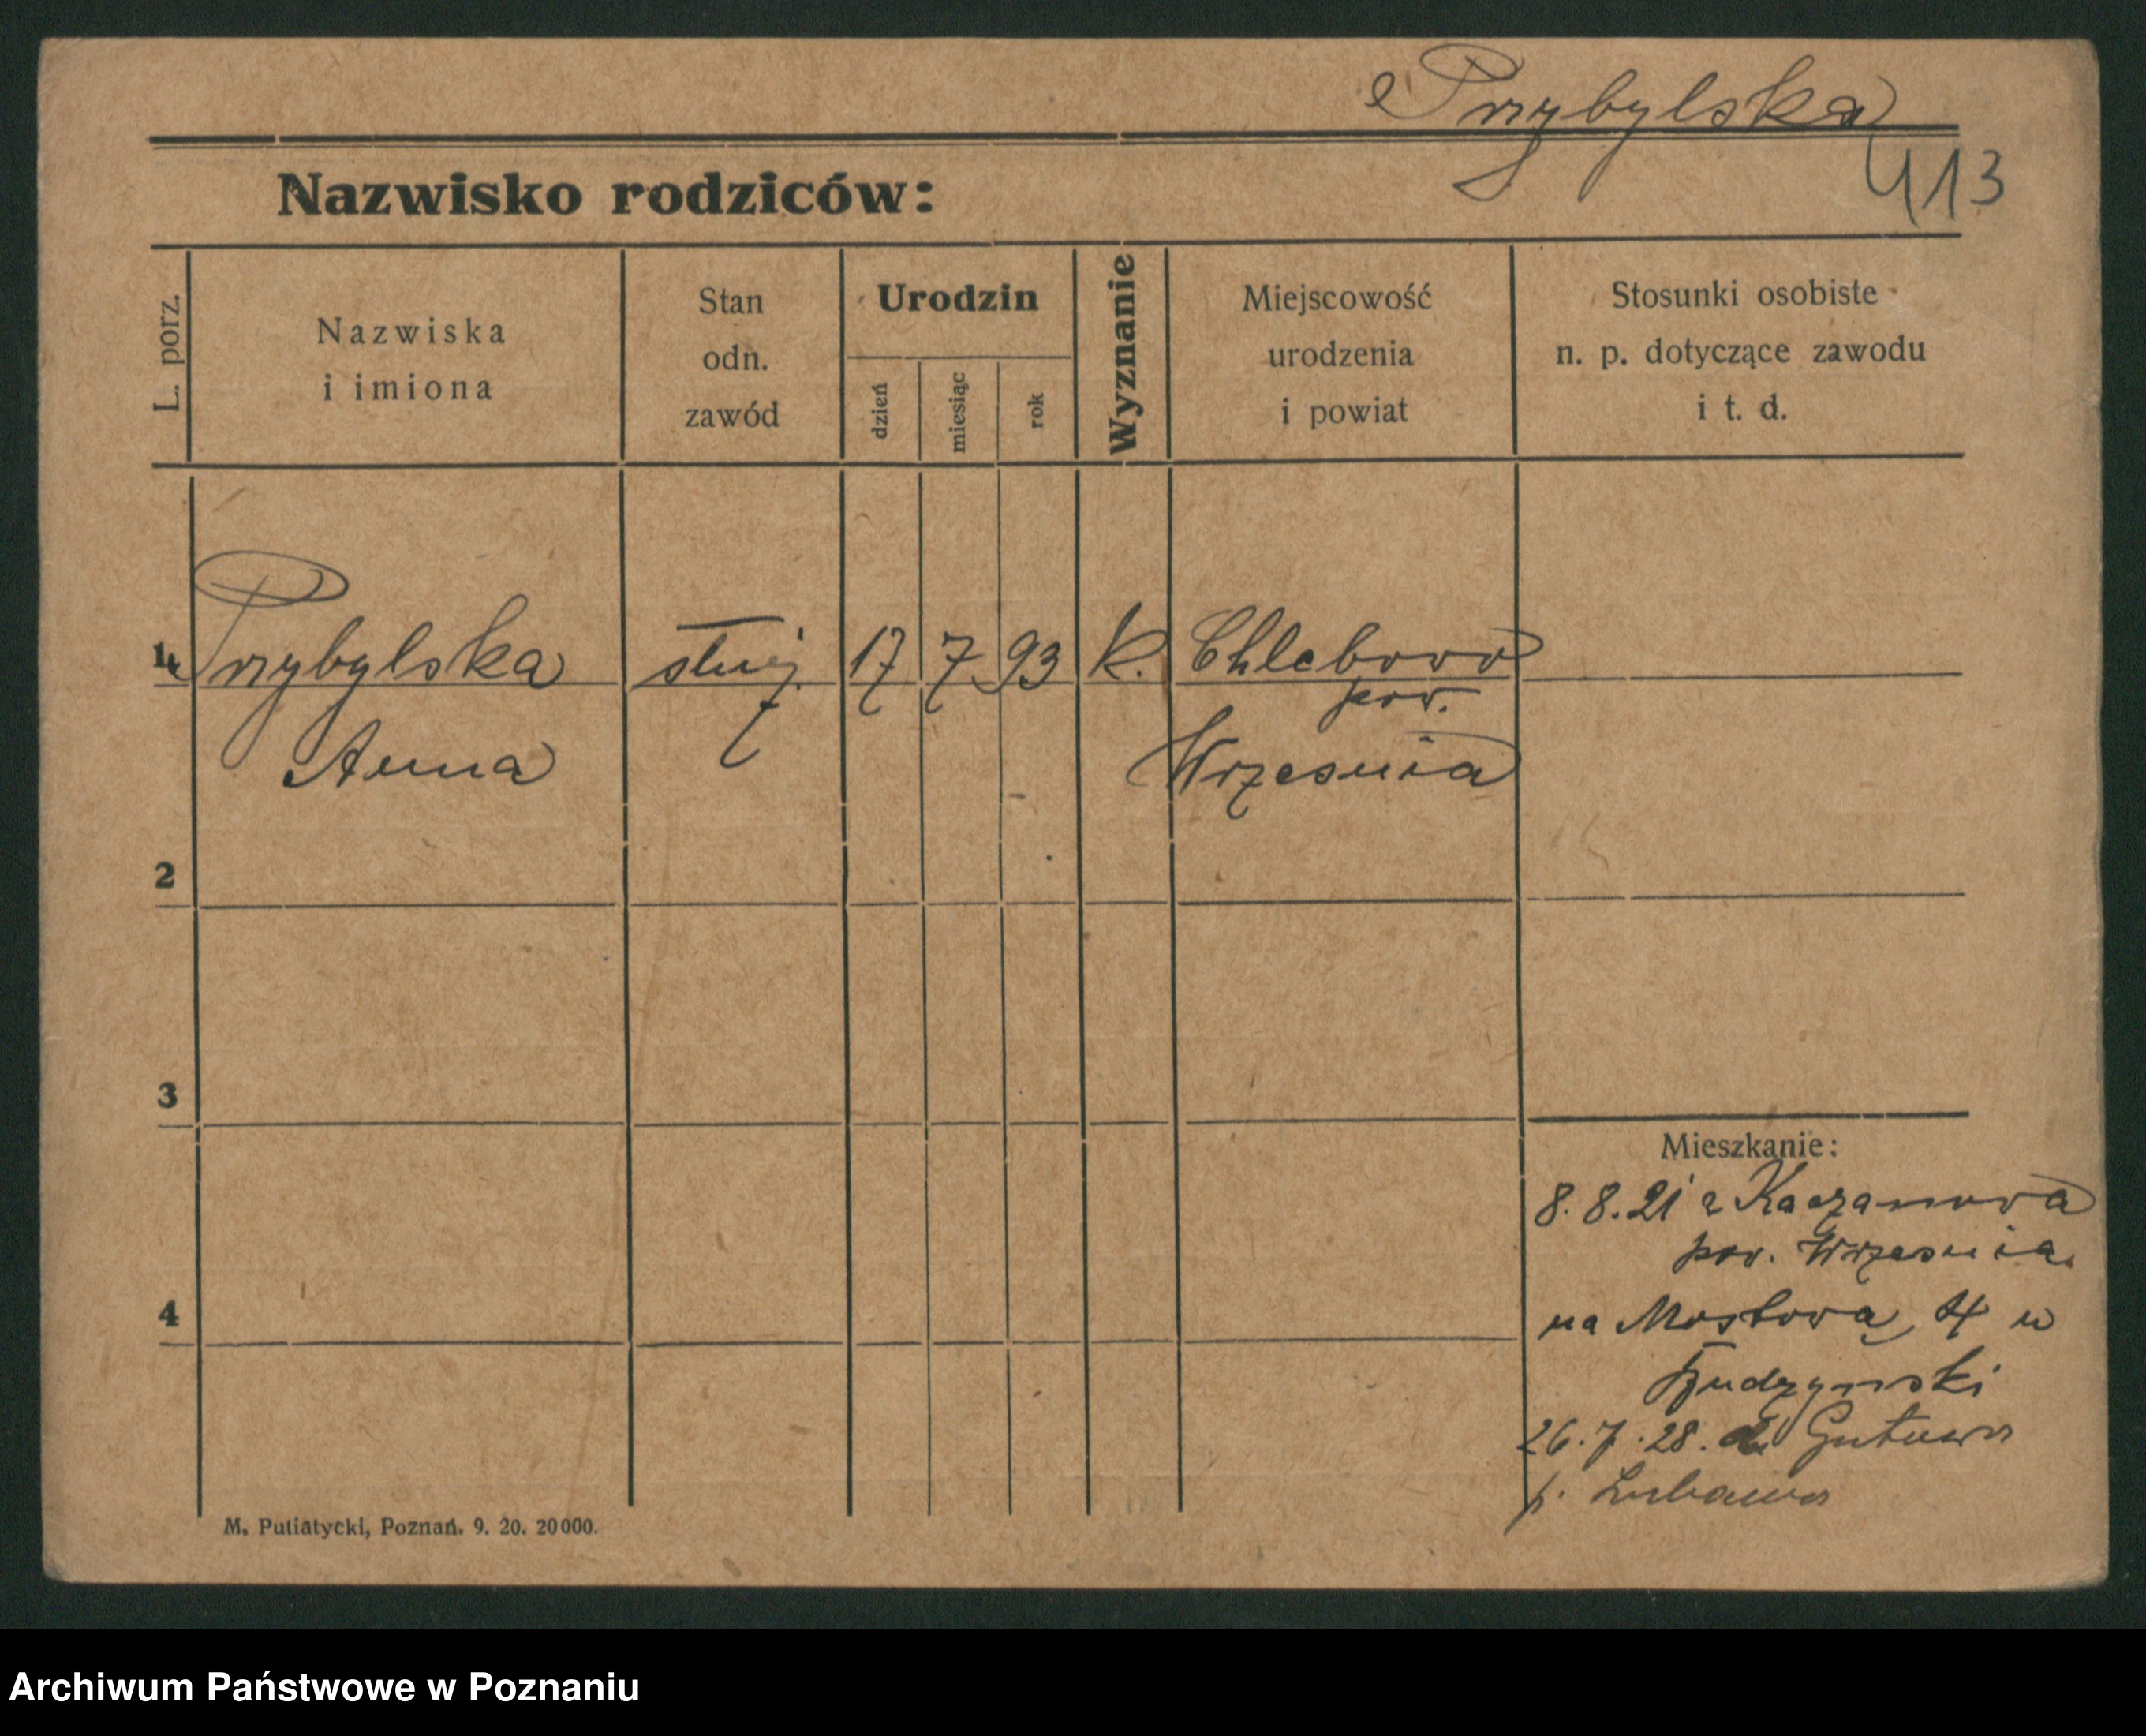 Przybylska
413
Nazwisko rodziców:
L. porz.
Nazwiska
i imiona
Stan
odn.
zawód
Urodzin
dzień
miesiąc
rok
Wyznanie
Miejscowość
urodzenia
i powiat
Stosunki osobiste
n. p. dotyczące zawodu
i t. d.
1 Przybylska służ. 17 7 93 k. Chlebowo
pow.
Anna Wrzesnia
2
3
Mieszkanie:
8. 8. 21 z Kaczanowa
pow. Wrzesnia
4
na Mostowa 4 u
26. 7. 28. do Gutowo
p. Lubawa
M. Putiatycki, Poznań. 9. 20. 20000.
Archiwum Państwowe w Poznaniu